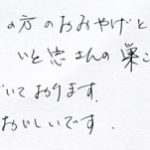 の方のおみやげと
いと忠さんの巣こ
いております。
おいしいです.